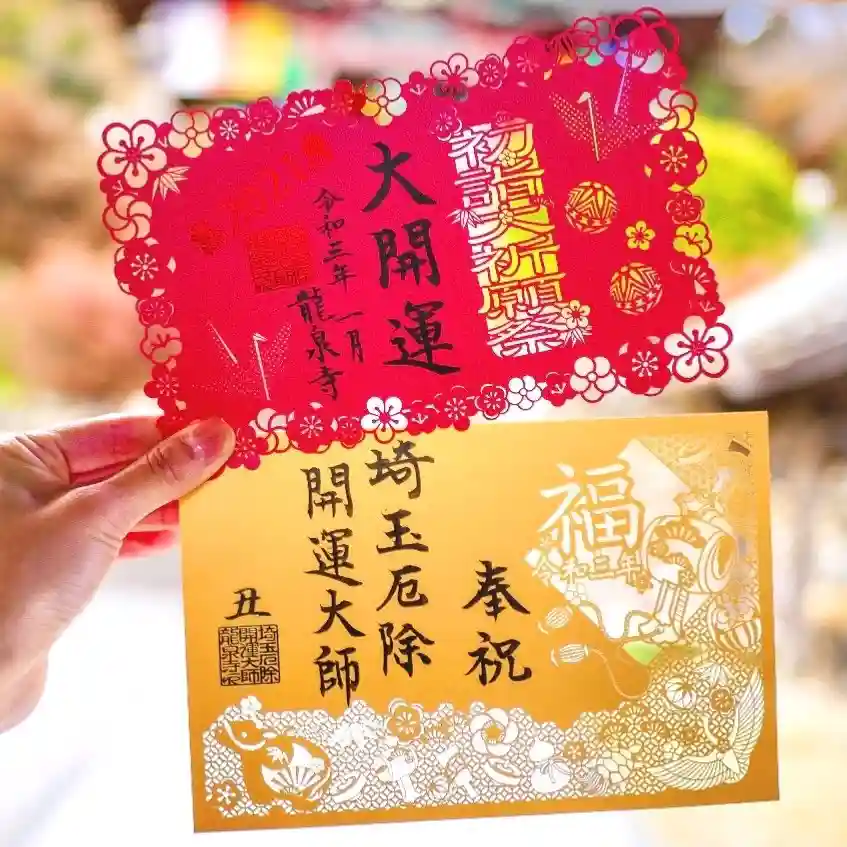 初詣大祈願祭
大開運
令和三年一月
龍泉寺
福
令和三年
奉祝
埼玉厄除
開運大師
丑
埼玉厄除
開運大師
龍泉寺